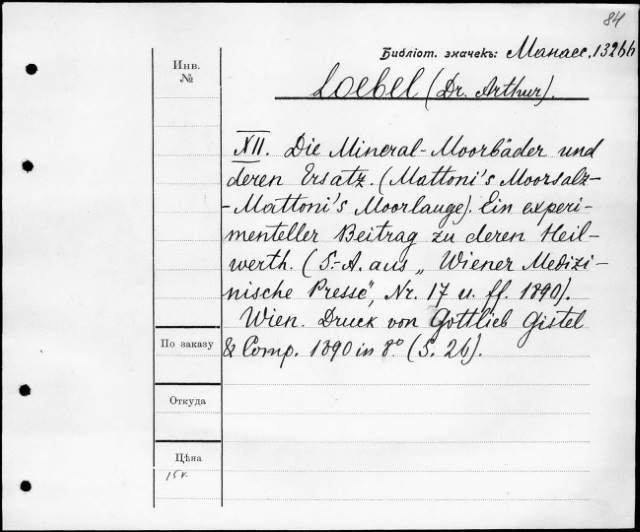 84
Библіот. значекъ: Манасс. 13266
Инв.
№
Loebel (Dr. Arthur).
XII. Die Mineral-Moorbäder und
deren Ersatz. (Mattoni's Moorsalz-
-Mattoni's Moorlauge). Ein experi-
menteller Beitrag zu deren Heil-
werth. (S.-A. aus „Wiener Medizi-
nische Presse", Nr. 17 u. ff. 1890).
Wien. Druck von Gottlieb Gistel
& Comp. 1890 in 8° (S. 26).
По заказу
Откуда
Цѣна
15к.